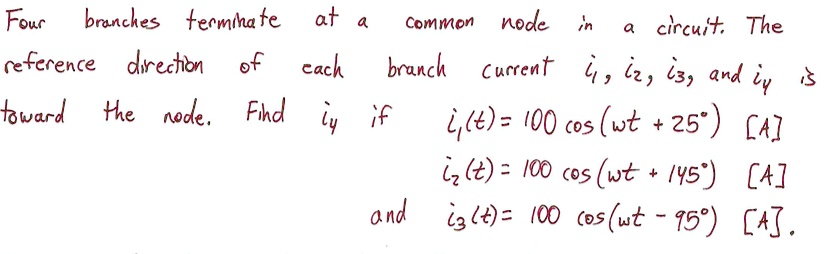 Four branches terminate at a common node in a circuit. The
reference direction of each branch current i₁, i₂, i₃, and i₄ is
toward the node. Find i₄ if i₁(t) = 100 cos(ωt + 25°) [A]
i₂(t) = 100 cos(ωt + 145°) [A]
and i₃(t) = 100 cos(ωt - 95°) [A].